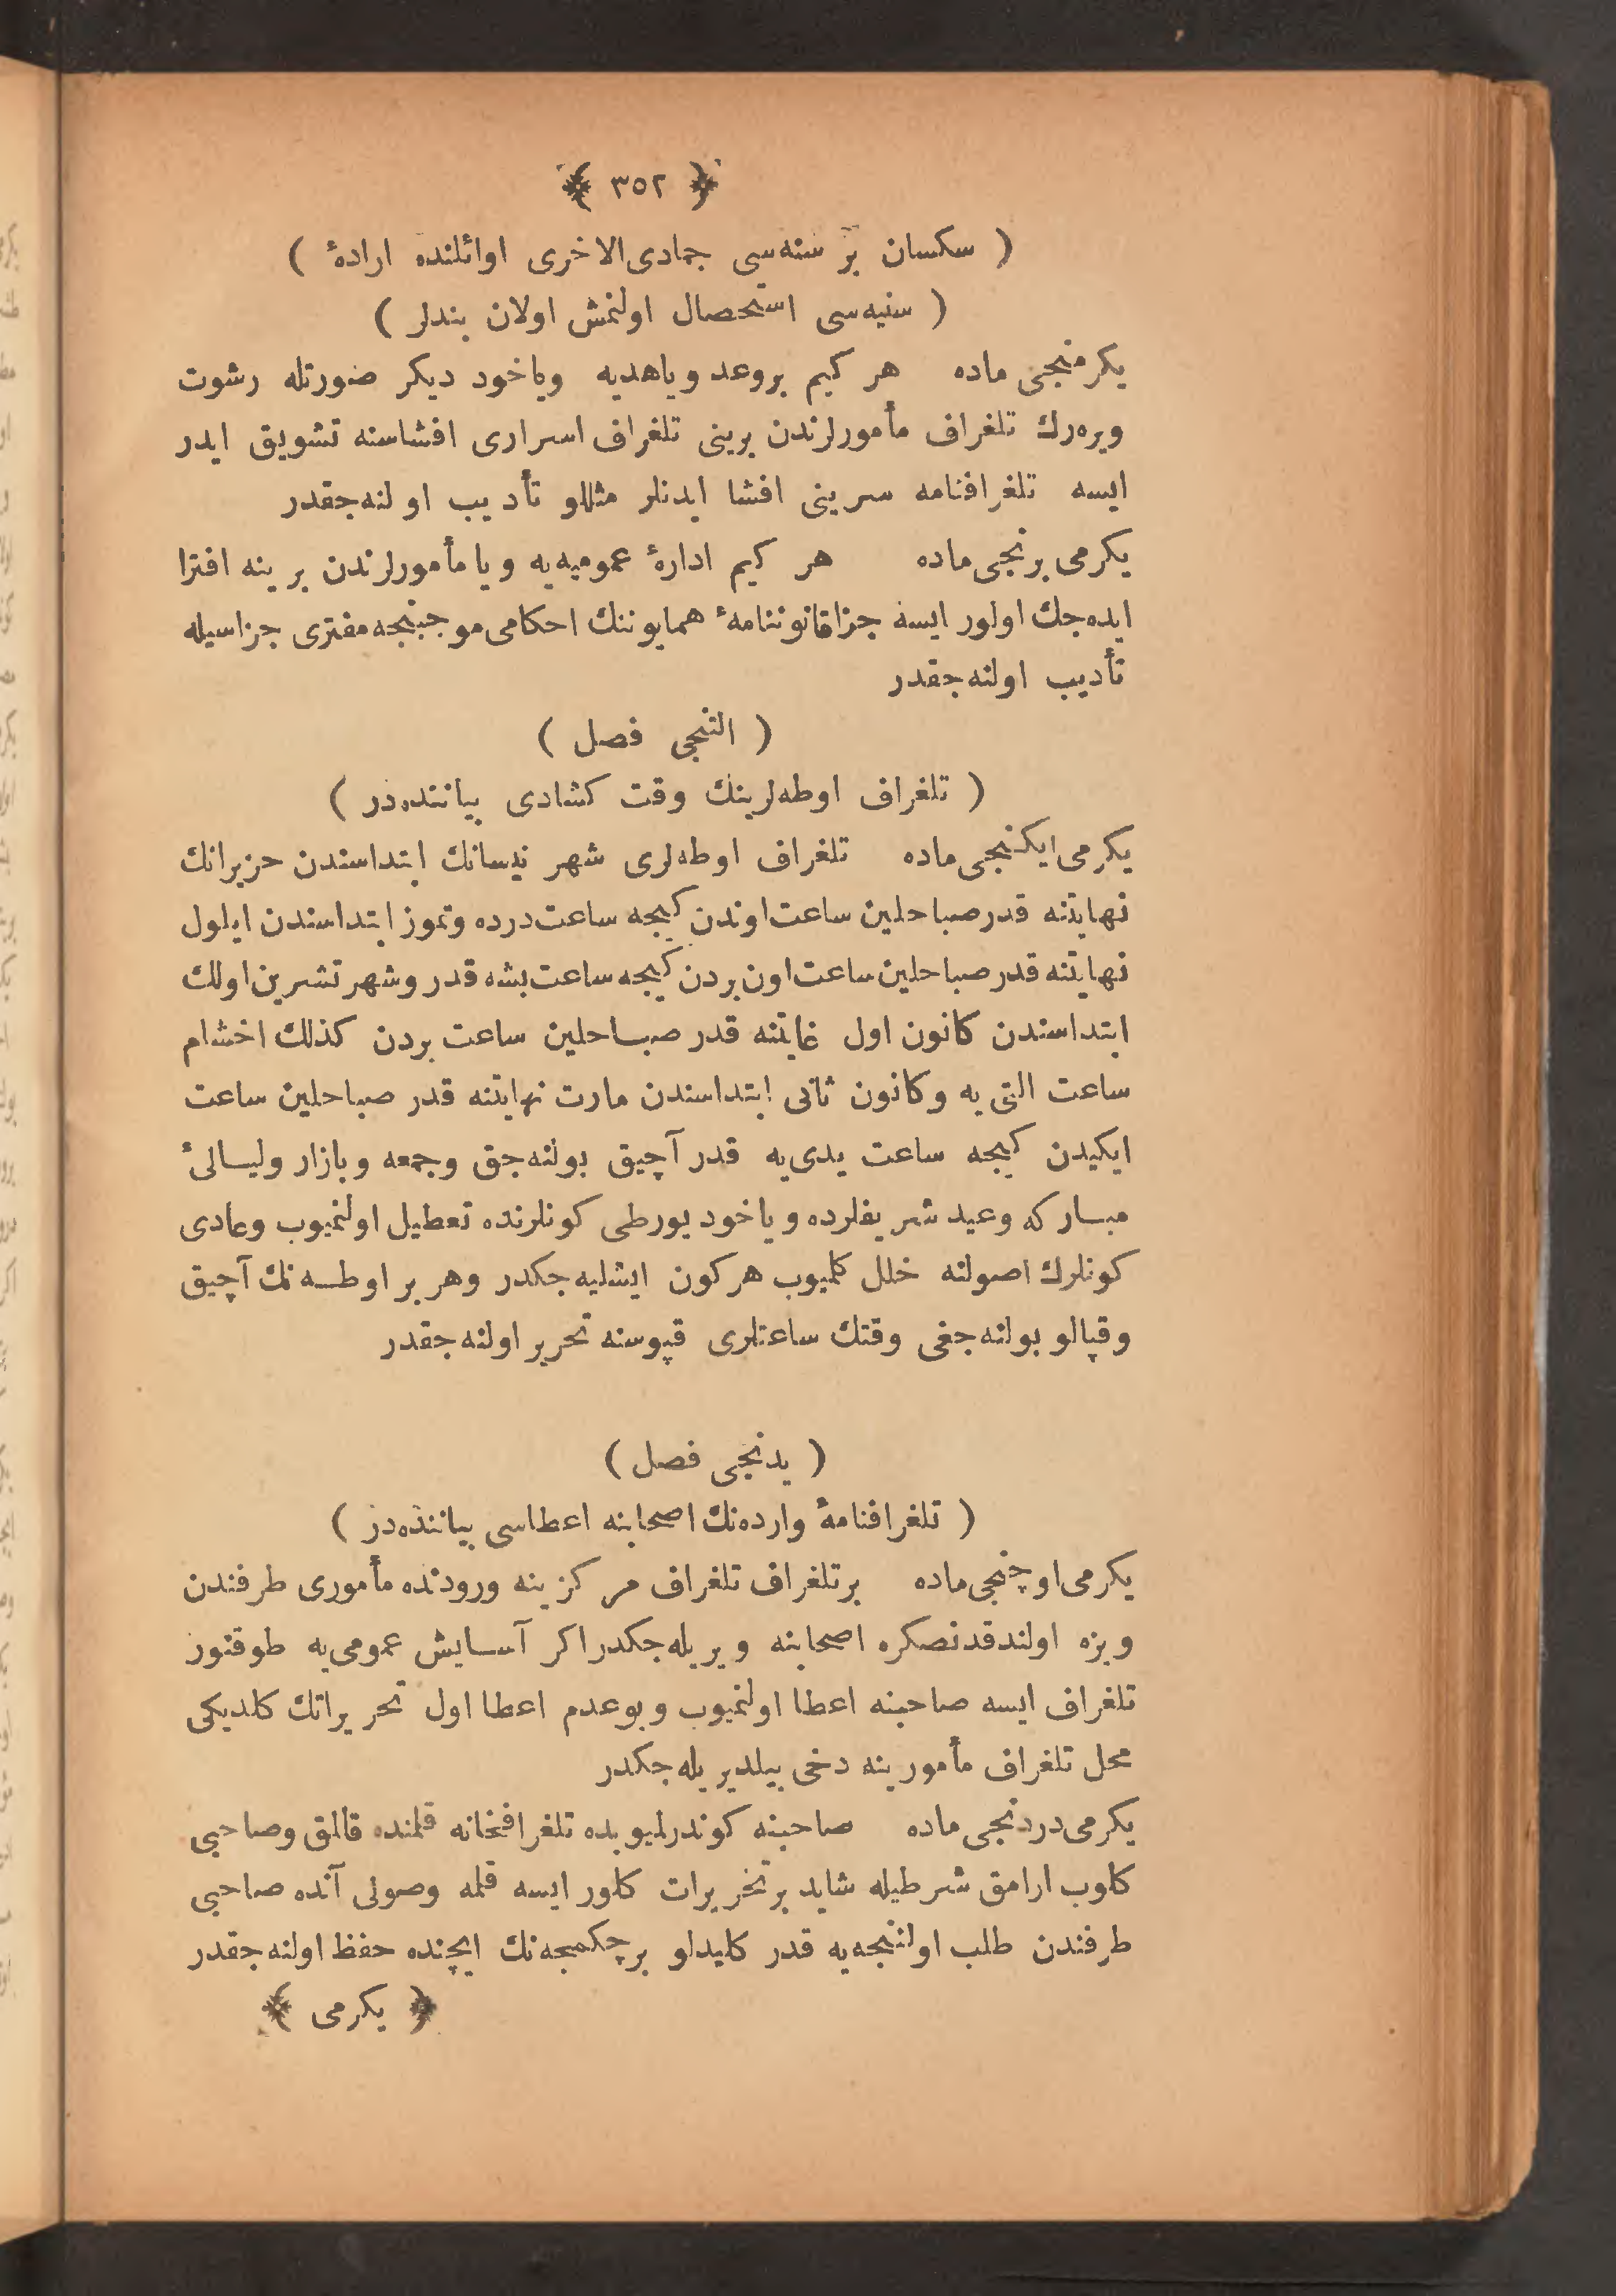 ﴿ ٣٥٢ ﴾
( سكسان بر سنه‌سی جمادی‌الاخری اوائلنده ارادهٔ )
( سنیه‌سی استحصال اولنمش اولان بندلر )
یكرمنجی ماده هر كیم بروعد ویاهدیه ویاخود دیكر صورتله رشوت
ویره‌رك تلغراف مأمورلرندن برینی تلغراف اسراری افشاسنه تشویق ایدر
ایسه تلغرافنامه سرینی افشا ایدنلر مثللو تأدیب اولنه‌جقدر
یكرمی برنجی ماده هر كیم ادارهٔ عمومیه‌یه ویا مأمورلرندن برینه افترا
ایده‌جك اولور ایسه جزا قانوننامهٔ همایوننك احكامی موجبنجه مفتری جزاسیله
تأدیب اولنه‌جقدر
( التنجی فصل )
( تلغراف اوطه‌لرینك وقت كشادی بیاننده‌در )
یكرمی ایكنجی ماده تلغراف اوطه‌لری شهر نیسانك ابتداسندن حزیرانك
نهایتنه قدر صباحلین ساعت اوندن كیجه ساعت درده وتموز ابتداسندن ایلول
نهایتنه قدر صباحلین ساعت اون بردن كیجه ساعت بشه قدر وشهر تشرین اولك
ابتداسندن كانون اول غایتنه قدر صباحلین ساعت بردن كذلك اخشام
ساعت التی‌یه وكانون ثانی ابتداسندن مارت نهایتنه قدر صباحلین ساعت
ایكیدن كیجه ساعت یدی‌یه قدر آچیق بولنه‌جق وجمعه وبازار ولیالیٔ
مباركه وعید شریفلرده ویاخود یورطی كونلرنده تعطیل اولنمیوب وعادی
كونلرك اصولنه خلل كلمیوب هركون ایشلیه‌جكدر وهر بر اوطه‌نك آچیق
وقپالو بولنه‌جغی وقتك ساعتلری قپوسنه تحریر اولنه‌جقدر
( یدنجی فصل )
( تلغرافنامهٔ وارده‌نك اصحابنه اعطاسی بیاننده‌در )
یكرمی اوچنجی ماده برتلغراف تلغراف مركزینه ورودنده مأموری طرفندن
ویزه اولندقدنصكره اصحابنه ویریله‌جكدر اكر آسایش عمومی‌یه طوقنور
تلغراف ایسه صاحبنه اعطا اولنمیوب وبوعدم اعطا اول تحریراتك كلدیكی
محل تلغراف مأمورینه دخی بیلدیریله‌جكدر
یكرمی دردنجی ماده صاحبنه كوندرلمیوبده تلغرافخانه قلمنده قالمق وصاحبی
كلوب ارامق شرطیله شاید برتحریرات كلور ایسه قلمه وصولی آنده صاحبی
طرفندن طلب اولننجه‌یه قدر كلیدلو برچكمجه‌نك ایچنده حفظ اولنه‌جقدر
﴿ یكرمی ﴾